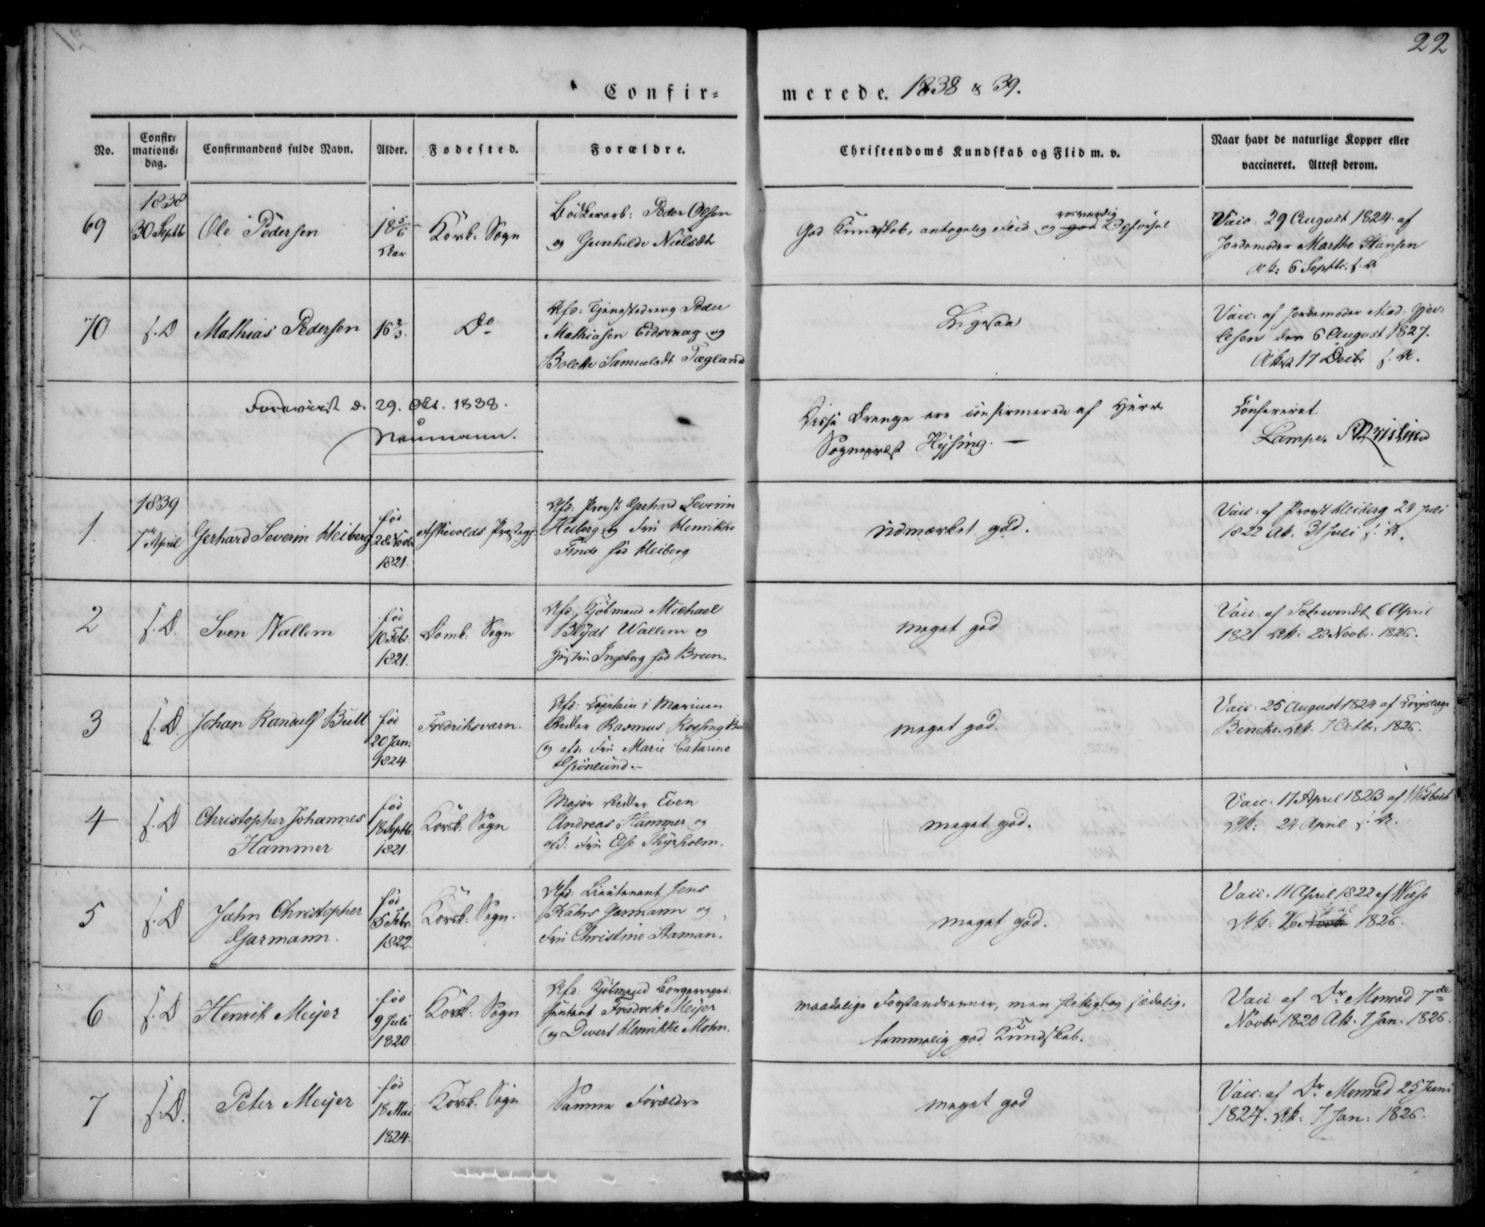 22
Confir= merede. 1838 & 39.
No.
Confir=
mations=
dag.
Confirmandens fulde Navn.
Alder.
Fødested.
Forældre.
Christendoms Kundskab og Flid m. v.
Naar havt de naturlige Kopper eller
vaccineret. Attest derom.
69
1838
30 Septb
Ole Pedersen
18 5/6
Korsk. Sogn
Peder Olsen
og Gunhilde Nielsdt
God Kundskab, antagelig Flid og god Opførsel
Vacc. 29 August 1824 af
Jordemoder Marthe Hansen
Att: 6 Septb: s. A.
70
s. D
Mathias Pedersen
16 2/3
Do
Peder
Mathiasen og
Bolette Samuelsdt
Ligesaa
Vacc. af Jordemoder Mad.
den 6 August 1827.
Att 17 Decbr s. A.
Foreviist d. 29. Oct. 1838.
Neumann.
Disse Drenge ere confirmerede af Herr
Sognepræst Hysing. —
Confereret
1839
1.
7de April
Gerhard Severin Heiberg
fød
28 Novbr
1821.
Askevolds Præstegj.
Afd. Provst Gerhard Severin
Heiberg og Fru Henrikke
Finde fød Heiberg
udmærket god.
Vacc. af Provst Heiberg 24 Juli
1822 Att. 31 Juli s. A.
2
s. D.
Sven Wallem
fød
10 Feb.
1821.
Domk. Sogn
Afd. Kjøbmand Michael
Blydt Wallem og
Hustru Ingeborg fød Breen.
meget god
Vacc. af Schwendt 6 April
1821 Att: 28 Novbr. 1826.
3
s. D
Johan Randulf Bull
fød
20 Jan
1824
Fredriksværn.
Afd: Capitain i Marinen
Ridder Rasmus
og afd. Fru Marie Catarine
Grønlund.
meget god.
Vacc. 25 August 1824 af
Att. 7 Octb. 1826.
4
s. D
Christopher Johannes
Hammer
fød
18 Septb.
1821.
Korsk. Sogn
Major Ridder Even
Andreas Hammer og
afd. Fru Else Thyrholm.
meget god.
Vacc. 17 April 1823 af
Att: 24 April s. A.
5
s. D
John Christopher
Garmann.
fød
5 Febr.
1822
Korsk. Sogn.
Afd. Lieutenant Jens
Rahrs Garmann og
Fru Christine Haman.
meget god.
Vacc. 11 April 1822 af
Att: 1826.
6
s. D
Henrik Meijer
fød
9 Juli
1820
Korsk. Sogn
Afd. Kjøbmand Borgerrepræ-
sentant Fredrik Meijer
og Divert Henrikke Mohn.
maadelige Forstandsevner, men flittig og sædelig,
temmelig god Kundskab.
Vacc af Dr. Monrad 7de
Novbr 1820 Att. 7 Jan. 1826.
7
s. D.
Peter Meijer
fød
18 Mai
1824.
Korsk. Sogn
Samme Forældre
meget god
Vacc. af Dr. Monrad 25 Juni
1824. Att. 7 Jan. 1826.